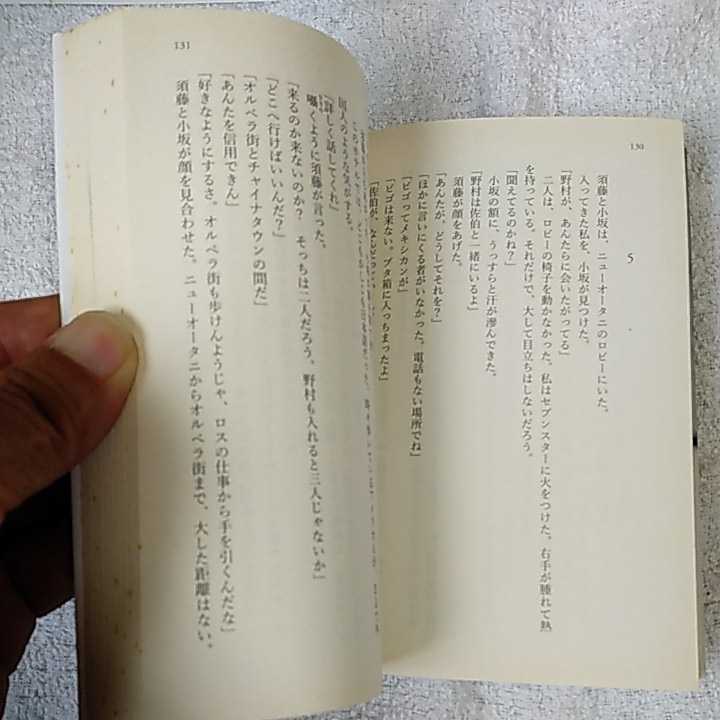 130
5
須藤と小坂は、ニューオータニのロビーにいた。
入ってきた私を、小坂が見つけた。
「野村が、あんたらに会いたがってる」
二人は、ロビーの椅子を動かなかった。私はセブンスターに火をつけた。右手が腫れて熱
を持っている。それだけで、大して目立ちはしないだろう。
「聞えてるのかね?」
小坂の額に、うっすらと汗が滲んできた。
「野村は佐伯と一緒にいるよ」
須藤が顔をあげた。
「あんたが、どうしてそれを?」
「ほかに言いにくる者がいなかった。電話もない場所でね」
「ビゴってメキシカンが」
「ビゴは来ない。ブタ箱に入っちまったよ」
「佐伯が、なんだって
131
人のような気がする。
「詳しく話してくれ」
囁くように須藤が言った。
「来るのか来ないのか? そっちは二人だろう。野村も入れると三人じゃないか」
「どこへ行けばいいんだ?」
「オルベラ街とチャイナタウンの間だ」
「あんたを信用できん」
「好きなようにするさ。オルベラ街も歩けんようじゃ、ロスの仕事から手を引くんだな」
須藤と小坂が顔を見合わせた。ニューオータニからオルベラ街まで、大した距離はない。